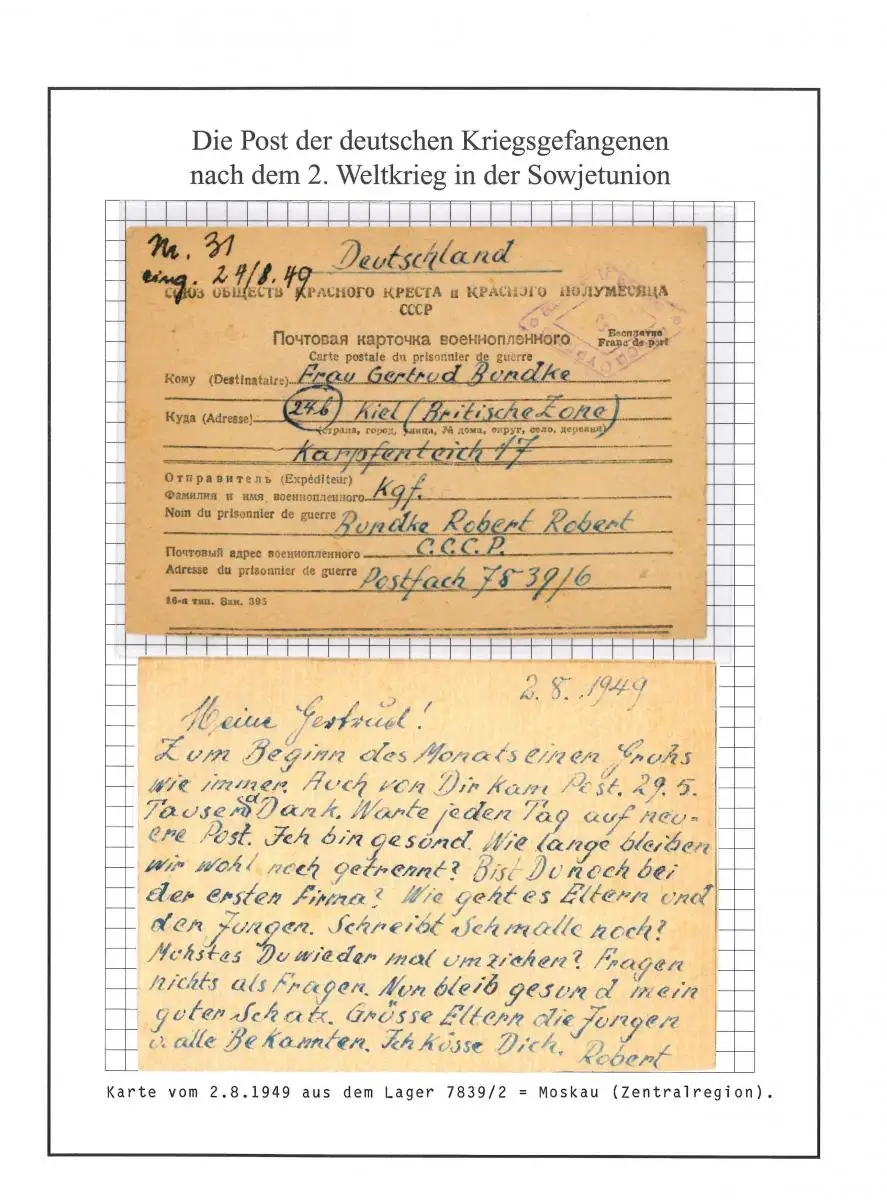 Die Post der deutschen Kriegsgefangenen
nach dem 2. Weltkrieg in der Sowjetunion
Nr. 31
eing. 24/8.49
Deutschland
СОЮЗ ОБЩЕСТВ КРАСНОГО КРЕСТА и КРАСНОГО ПОЛУМЕСЯЦА
СССР
Почтовая карточка военнопленного
Бесплатно
Carte postale du prisonnier de guerre
Franc de port
Кому (Destinataire) Frau Gertrud Bundke
Куда (Adresse) 24b Kiel (Britische Zone)
(страна, город, улица, № дома, округ, село, деревня)
Karpfenteich 17
Отправитель (Expéditeur)
Фамилия и имя военнопленного Kgf.
Nom du prisonnier de guerre Bundke Robert Robert
Почтовый адрес военнопленного C.C.C.P.
Adresse du prisonnier de guerre Postfach 7839/6
16-я тип. Зак. 395
2.8.1949
Meine Gertrud!
Zum Beginn des Monats einen Gruhs
wie immer. Auch von Dir kam Post. 29.5.
Tausend Dank. Warte jeden Tag auf neu-
ere Post. Ich bin gesund. Wie lange bleiben
wir wohl noch getrennt? Bist Du noch bei
der ersten Firma? Wie geht es Eltern und
den Jungen. Schreibt Schmalle noch?
Mohstes Du wieder mal umziehen? Fragen
nichts als Fragen. Nun bleib gesund mein
guter Schatz. Grüsse Eltern die Jungen
u. alle Bekannten. Ich küsse Dich.
Robert
Karte vom 2.8.1949 aus dem Lager 7839/2 = Moskau (Zentralregion).